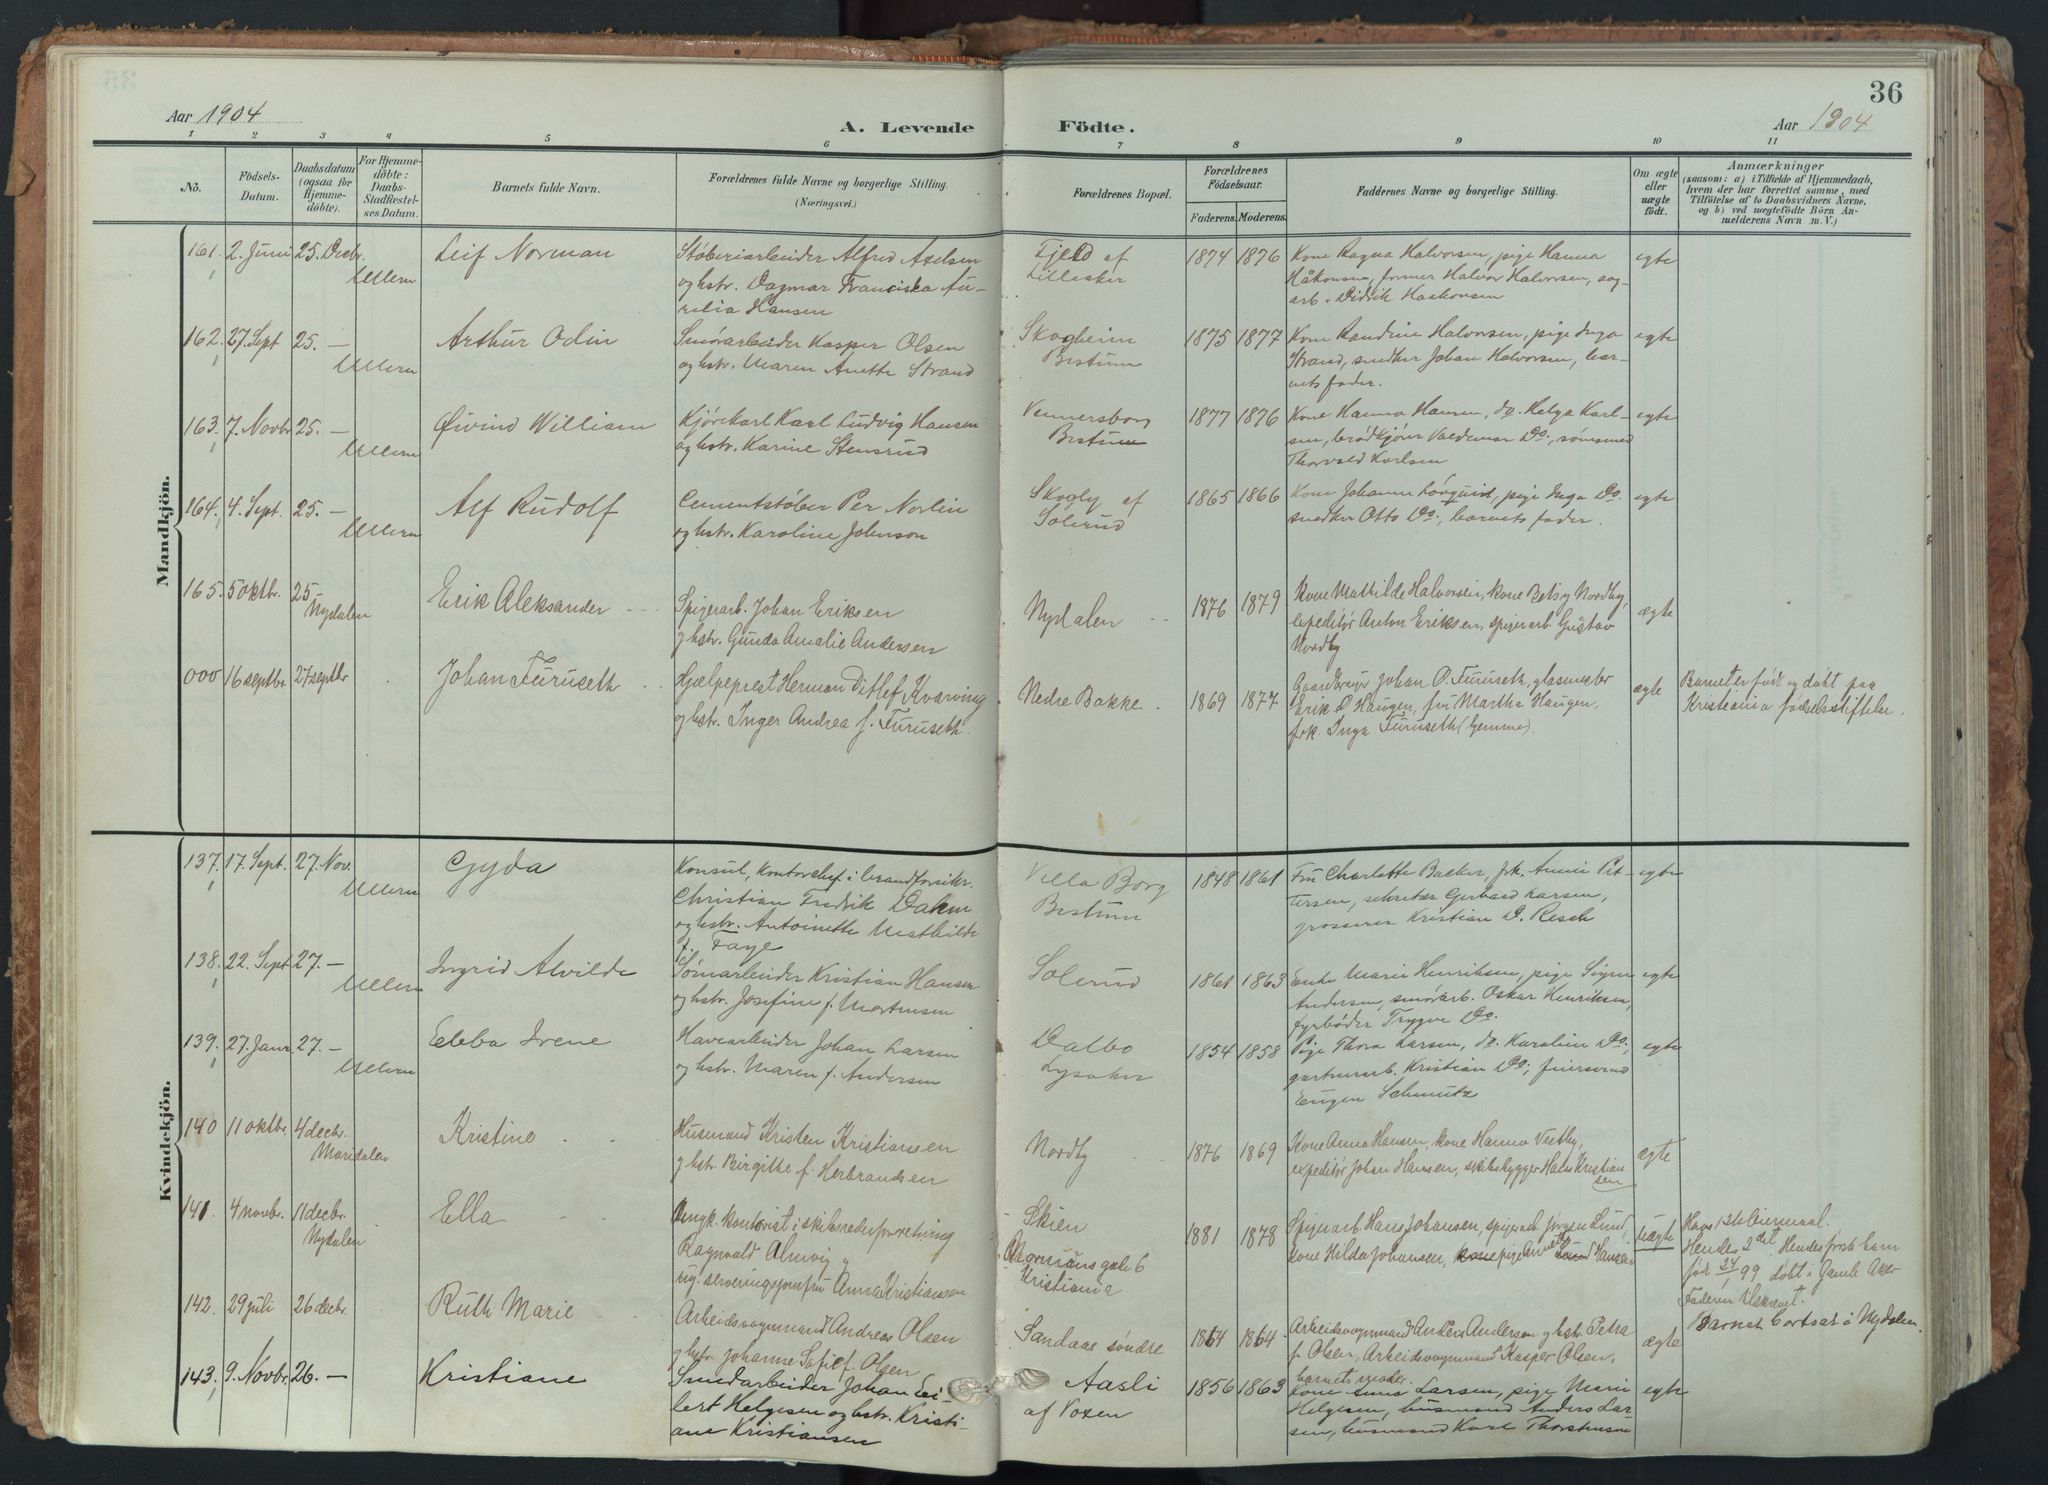 36
Aar 1904
A. Levende Födte.
Aar 1904
1 2 3 4 5 6 7 8 9 10 11
No.
Födsels-
Datum.
Daabsdatum
(ogsaa for
Hjemme-
döbte).
For Hjemme-
döbte:
Daabs-
Stadfæstel-
ses Datum.
Barnets fulde Navn.
Forældrenes fulde Navne og borgerlige Stilling.
(Næringsvei.)
Forældrenes Bopæl.
Forældrenes
Födselsaar.
Faderens. Moderens.
Faddernes Navne og borgerlige Stilling.
Om ægte
eller
uægte
födt.
Anmærkninger
(saasom: a) i Tilfælde af Hjemmedaab,
hvem der har forrettet samme, med
Tilföielse af to Daabsvidners Navne,
og b) ved uægtefödte Börn An-
melderens Navn m. V.)
Mandkjön.
161. 2. Juni 25. Decbr. Ullern
Leif Norman
Støberiarbeider Alfred Axelsen
og hstr. Dagmar Franciska Au-
relia Hansen
Fjeld af
Lilleaker
1874 1876
Kone Ragna Halvorsen, pige Hanna
Håkonsen, former Halvor Halvorsen, sag-
arb. Didrik Haakonsen
egte
162. 27. Sept 25. — Ullern
Arthur Odin
Smørarbeider Kasper Olsen
og hstr. Maren Anette Strand
Skogheim
Bestum
1875 1877
Kone Randine Halvorsen, pige Inga
Strand, snedker Johan Halvorsen, bar-
nets fader.
egte
163. 7. Novbr 25. — Ullern
Øivind William
Kjørekarl Karl Ludvig Hansen
og hstr. Karine Stensrud
Vennersborg
Bestum
1877 1876
Kone Hanna Hansen, do. Helga Karl-
sen, brødkjører Valdemar Do., sømsmed
Thorvald Karlsen
egte
164. 4. Sept. 25. — Ullern
Alf Rudolf
Cementstøber Per Norlin
og hstr. Karoline Johnson
Skogly af
Solerud
1865 1866
Kone Johanne Lövquist, pige Inga Do.
snedker Otto Do., barnets fader.
egte
165. 5 oktbr. 25 — Nydalen
Erik Aleksander
Spigerarb. Johan Eriksen
og hstr. Gunda Amalie Andersen
Nydalen
1876 1879
Kone Mathilde Halvorsen, kone Betsy Nordby,
expeditør Anton Eriksen, spigerarb. Gustav
Nordby
ægte
000 16 septbr. 27 septbr
Johan Furuseth
Hjælpeprest Herman Ditlef Kvarving
og hstr. Inger Andrea f. Furuseth.
Nedre Bakke.
1869 1877
Gaardbruger Johan O. Furuseth, glasmester
Erik O. Haugen, fru Martha Haugen,
frk. Inga Furuseth (hjemme).
ægte
Barnet er født og døbt paa
Kristiania fødselsstiftelse.
Kvindekjön.
137. 17. Sept. 27. Nov. Ullern
Gyda
Konsul, kontorchef i brandforsikr.
Christian Fredrik Dahm
og hstr. Antoinette Mathilde
f. Faye
Villa Borg
Bestum
1848 1861
Fru Charlotte Backer, frk. Annie Pet-
ersen, sekretær Gerhard Larsen,
grosserer Kristian D. Resch
egte
138. 22. Sept 27. — Ullern
Ingrid Alvilde
Sømarbeider Kristian Hansen
og hstr. Josefine f. Mortensen
Solerud
1861 1863
Enke Marie Henriksen, pige Signe
Andersen, smørarb. Oskar Henriksen,
fyrbøder Trygve Do.
egte
139. 27. Janr. 27. — Ullern
Ebba Irene
Havearbeider Johan Larsen
og hstr. Maren f. Andersen
Dalbo
Lysaker
1854 1858
Pige Thora Larsen, do. Karoline Do,
gartnerarb. Kristian Do;
Eugen Schmutz
egte
140 11 oktbr. 4 decbr. Maridalen
Kristine
Husmand Kristen Kristiansen
og hstr. Birgithe f. Herbrandsen
Nordby
1876 1869
Kone Anna Hansen, kone Hanna Vestby,
expeditør Johan Hansen, skibsbygger Hans Kristian
sen
ægte
141. 4 novbr. 11 decbr. Nydalen
Ella
Ungk. kontorist i skibsrederforretning
Ragnvald Almvig og
ug. serveringsjomfru Anna Kristiansen
Skien
Normans gade 6
Kristiania
1881 1878
Spigerarb. Hans Johansen, spigerarb. Jørgen Lund,
kone Hilda Johansen, kone pige Annette Lund Hansen
uægte
Hans 1ste leiermaal.
Hendes 2det. Hendes første barn
født 24/1 99 døbt i Gamle Aker
Faderen Udskrevet.
Barnet bortsat i Nydalen.
142. 29 juli 26 decbr.
Ruth Marie
Arbeidsvognmand Andreas Olsen
og hstr. Johanne Sofie f. Olsen
Sandaas søndre
1864 1864
Arbeidsvognmand Anders Andersen og hst. Petra
f. Olsen, Arbeidsvognmand Kasper Olsen,
barnets moder.
ægte
143. 9. Novbr. 26. —
Kristiane
Smedarbeider Johan Ei-
lert Helgesen og hstr. Kristi-
ane Kristiansen
Aasli
af Voxen
1856 1863
Kone Anna Larsen, pige Marie
Helgesen, husmand Anders Lar-
sen, husmand Karl Thorstensen
egte